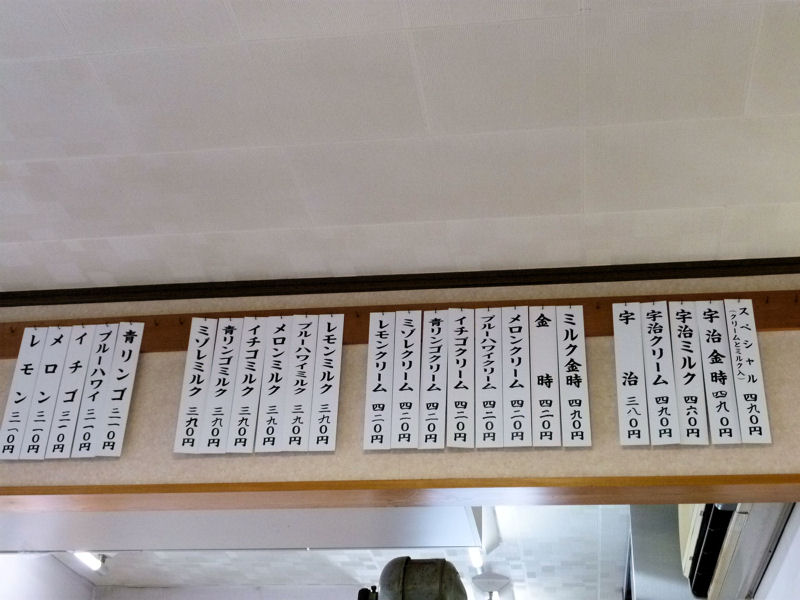 スペシャル 四九〇円
(クリームとミルク入)
宇治金時 四九〇円
宇治ミルク 四六〇円
宇治クリーム 四九〇円
宇治 三八〇円
ミルク金時 四九〇円
金時 四二〇円
メロンクリーム 四二〇円
ブルーハワイクリーム 四二〇円
イチゴクリーム 四二〇円
青リンゴクリーム 四二〇円
ミゾレクリーム 四二〇円
レモンクリーム 四二〇円
レモンミルク 三九〇円
ブルーハワイミルク 三九〇円
メロンミルク 三九〇円
イチゴミルク 三九〇円
青リンゴミルク 三九〇円
ミゾレミルク 三九〇円
青リンゴ 三一〇円
ブルーハワイ 三一〇円
イチゴ 三一〇円
メロン 三一〇円
レモン 三一〇円